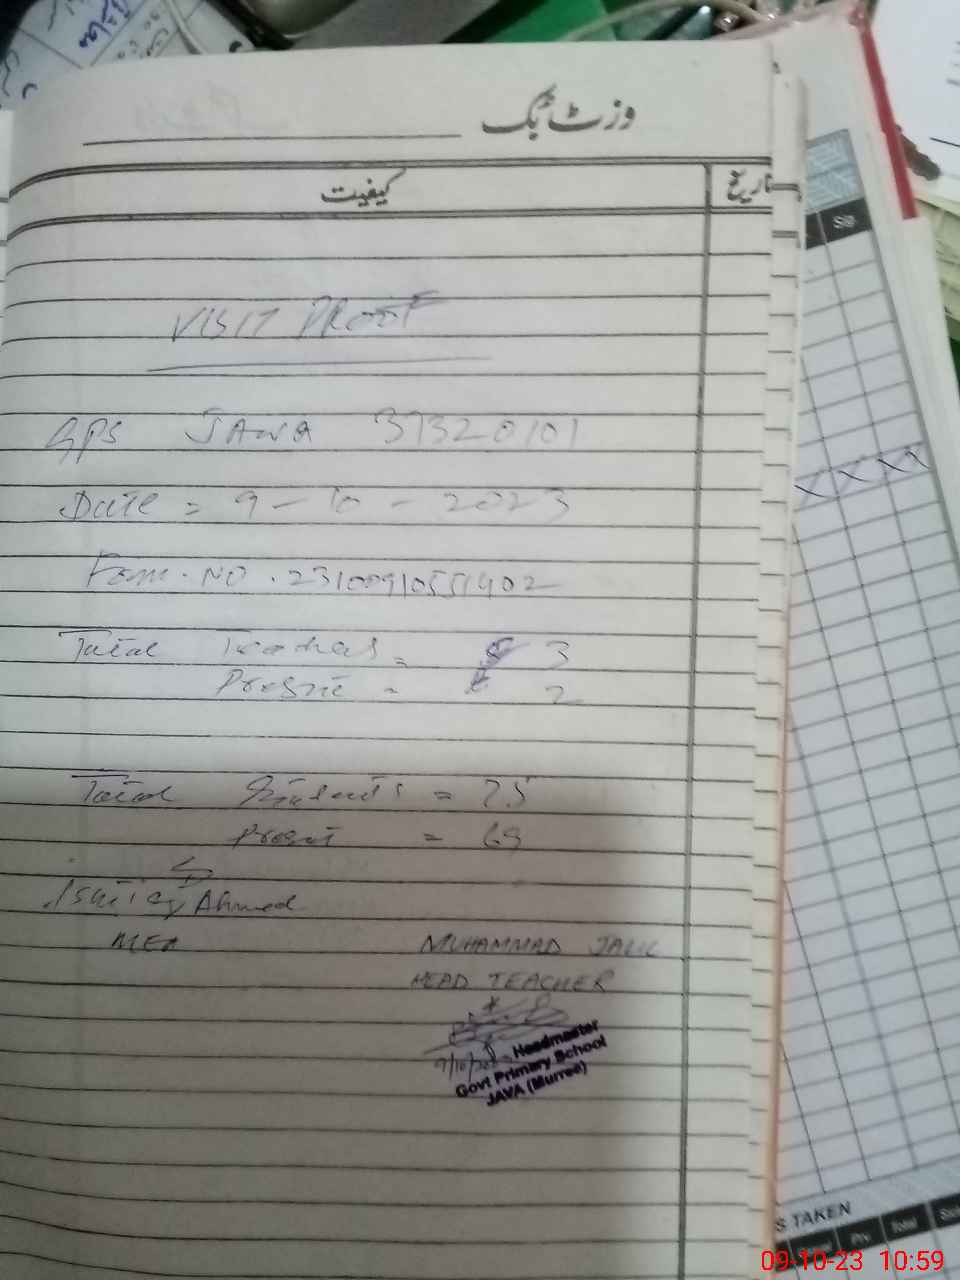 وزٹ بک
کیفیت تاریخ
VISIT PROOF
GPS JAWA 37320101
Date = 9 - 10 - 2023
Form. NO.
Total Teachers = 3
Present = 2
Total Students = 75
Present = 69
Ahmed
MEA MUHAMMAD JALIL
HEAD TEACHER
Headmaster
Govt Primary School
JAVA (Murree)
S TAKEN
Prv Total
09-10-23 10:59